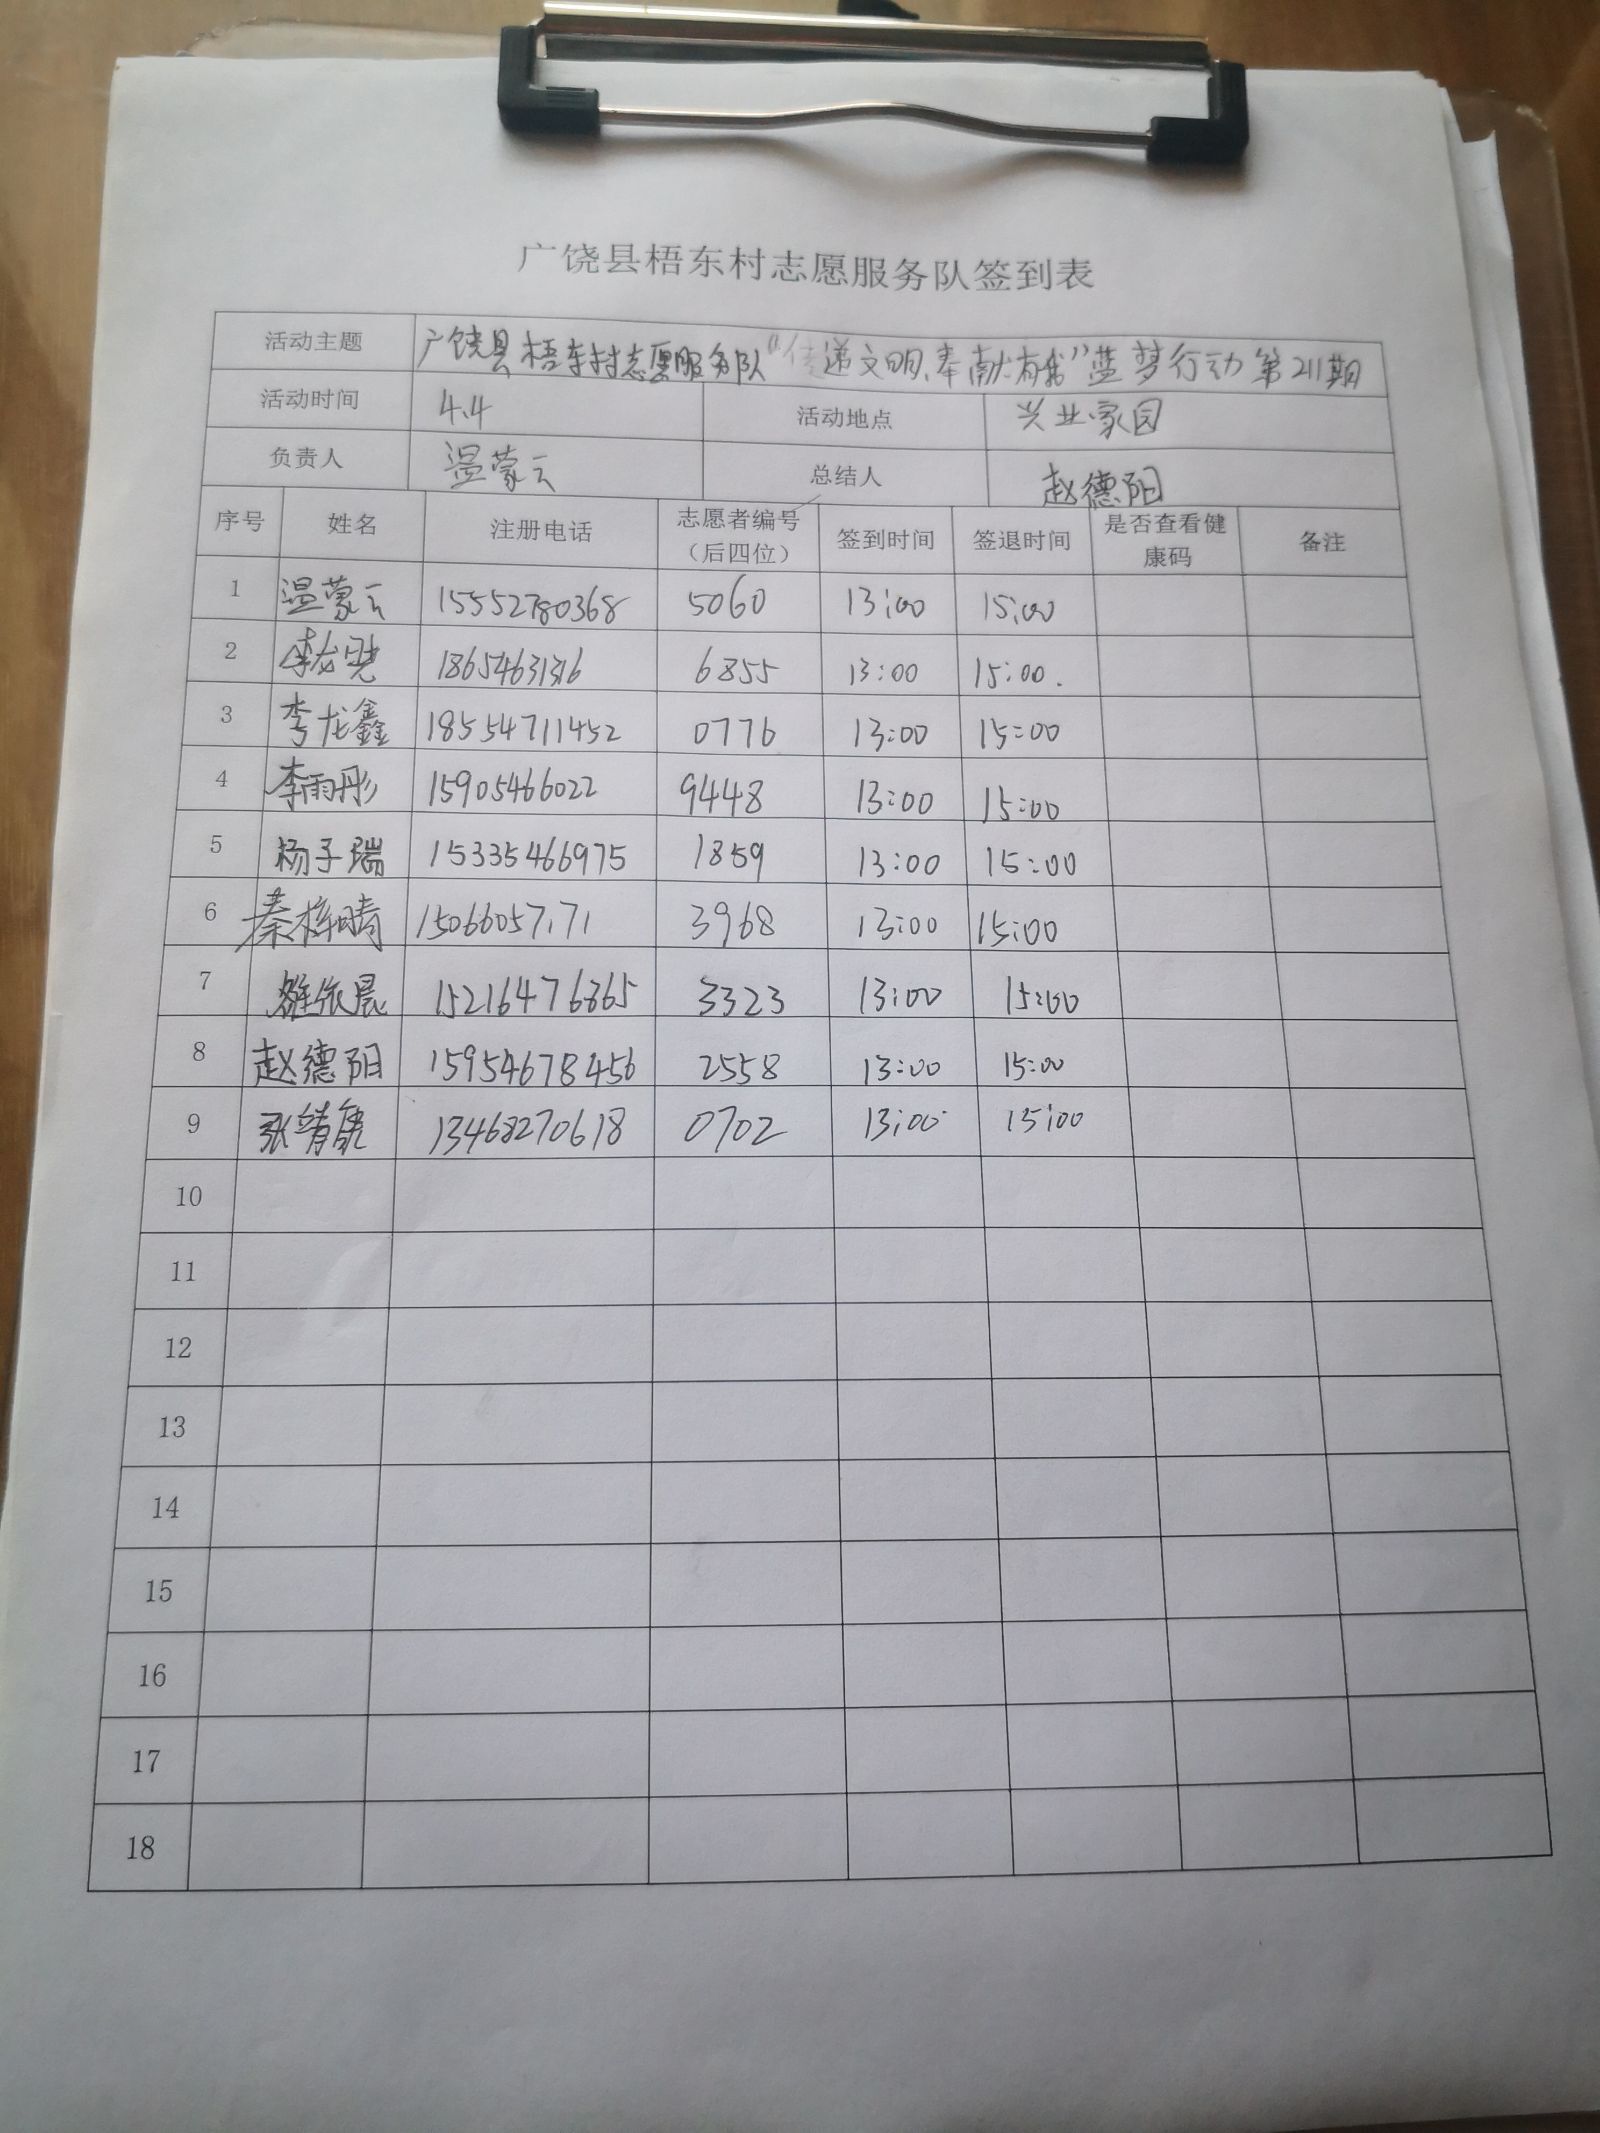 广饶县梧东村志愿服务队签到表
活动主题 广饶县梧东村志愿服务队“传递文明、奉献有我”蓝梦行动第211期
活动时间 4.4 活动地点 兴业家园
负责人 温蒙云 总结人 赵德阳
序号 姓名 注册电话 志愿者编号（后四位） 签到时间 签退时间 是否查看健康码 备注
1 温蒙云 15552780368 5060 13:00 15:00
2 18654631316 6855 13:00 15:00.
3 李龙鑫 18554711452 0776 13:00 15:00
4 李雨彤 15905466022 9448 13:00 15:00
5 杨子瑞 15335466975 1859 13:00 15:00
6 秦梓晴 3968 13:00 15:00
7 依晨 15216476865 3323 13:00 15:00
8 赵德阳 15954678456 2558 13:00 15:00
9 张 13468270618 0702 13:00 15:00
10
11
12
13
14
15
16
17
18